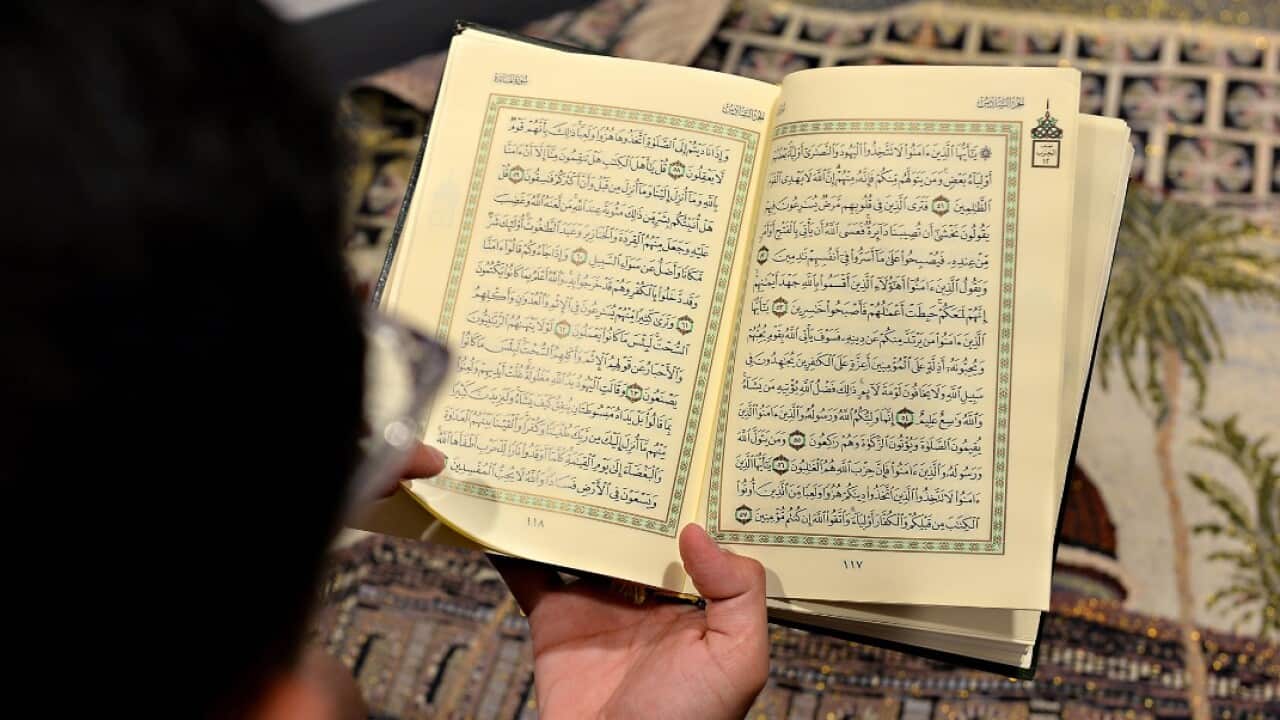 الجزء السادس
الحزب
١٢
۞ يَٰٓأَيُّهَا ٱلَّذِينَ ءَامَنُوا۟ لَا تَتَّخِذُوا۟ ٱلْيَهُودَ وَٱلنَّصَٰرَىٰٓ أَوْلِيَآءَ بَعْضُهُمْ
أَوْلِيَآءُ بَعْضٍ وَمَن يَتَوَلَّهُم مِّنكُمْ فَإِنَّهُۥ مِنْهُمْ إِنَّ ٱللَّهَ لَا يَهْدِى ٱلْقَوْمَ
ٱلظَّٰلِمِينَ ٥١ فَتَرَى ٱلَّذِينَ فِى قُلُوبِهِم مَّرَضٌ يُسَٰرِعُونَ فِيهِمْ
يَقُولُونَ نَخْشَىٰٓ أَن تُصِيبَنَا دَآئِرَةٌ فَعَسَى ٱللَّهُ أَن يَأْتِىَ بِٱلْفَتْحِ أَوْ أَمْرٍ
مِّنْ عِندِهِۦ فَيُصْبِحُوا۟ عَلَىٰ مَآ أَسَرُّوا۟ فِىٓ أَنفُسِهِمْ نَٰدِمِينَ ٥٢
وَيَقُولُ ٱلَّذِينَ ءَامَنُوٓا۟ أَهَٰٓؤُلَآءِ ٱلَّذِينَ أَقْسَمُوا۟ بِٱللَّهِ جَهْدَ أَيْمَٰنِهِمْ
إِنَّهُمْ لَمَعَكُمْ حَبِطَتْ أَعْمَٰلُهُمْ فَأَصْبَحُوا۟ خَٰسِرِينَ ٥٣ يَٰٓأَيُّهَا
ٱلَّذِينَ ءَامَنُوا۟ مَن يَرْتَدَّ مِنكُمْ عَن دِينِهِۦ فَسَوْفَ يَأْتِى ٱللَّهُ بِقَوْمٍ يُحِبُّهُمْ
وَيُحِبُّونَهُۥٓ أَذِلَّةٍ عَلَى ٱلْمُؤْمِنِينَ أَعِزَّةٍ عَلَى ٱلْكَٰفِرِينَ يُجَٰهِدُونَ فِى
سَبِيلِ ٱللَّهِ وَلَا يَخَافُونَ لَوْمَةَ لَآئِمٍ ذَٰلِكَ فَضْلُ ٱللَّهِ يُؤْتِيهِ مَن يَشَآءُ
وَٱللَّهُ وَٰسِعٌ عَلِيمٌ ٥٤ إِنَّمَا وَلِيُّكُمُ ٱللَّهُ وَرَسُولُهُۥ وَٱلَّذِينَ ءَامَنُوا۟ ٱلَّذِينَ
يُقِيمُونَ ٱلصَّلَوٰةَ وَيُؤْتُونَ ٱلزَّكَوٰةَ وَهُمْ رَٰكِعُونَ ٥٥ وَمَن يَتَوَلَّ ٱللَّهَ
وَرَسُولَهُۥ وَٱلَّذِينَ ءَامَنُوا۟ فَإِنَّ حِزْبَ ٱللَّهِ هُمُ ٱلْغَٰلِبُونَ ٥٦ يَٰٓأَيُّهَا ٱلَّذِينَ
ءَامَنُوا۟ لَا تَتَّخِذُوا۟ ٱلَّذِينَ ٱتَّخَذُوا۟ دِينَكُمْ هُزُوًا وَلَعِبًا مِّنَ ٱلَّذِينَ أُوتُوا۟
ٱلْكِتَٰبَ مِن قَبْلِكُمْ وَٱلْكُفَّارَ أَوْلِيَآءَ وَٱتَّقُوا۟ ٱللَّهَ إِن كُنتُم مُّؤْمِنِينَ ٥٧
١١٧
الجزء السادس
سورة المائدة
وَإِذَا نَادَيْتُمْ إِلَى ٱلصَّلَوٰةِ ٱتَّخَذُوهَا هُزُوًا وَلَعِبًا ذَٰلِكَ بِأَنَّهُمْ قَوْمٌ
لَّا يَعْقِلُونَ ٥٨ قُلْ يَٰٓأَهْلَ ٱلْكِتَٰبِ هَلْ تَنقِمُونَ مِنَّآ إِلَّآ أَنْ ءَامَنَّا
بِٱللَّهِ وَمَآ أُنزِلَ إِلَيْنَا وَمَآ أُنزِلَ مِن قَبْلُ وَأَنَّ أَكْثَرَكُمْ فَٰسِقُونَ ٥٩ قُلْ
هَلْ أُنَبِّئُكُم بِشَرٍّ مِّن ذَٰلِكَ مَثُوبَةً عِندَ ٱللَّهِ مَن لَّعَنَهُ ٱللَّهُ وَغَضِبَ
عَلَيْهِ وَجَعَلَ مِنْهُمُ ٱلْقِرَدَةَ وَٱلْخَنَازِيرَ وَعَبَدَ ٱلطَّٰغُوتَ أُو۟لَٰٓئِكَ شَرٌّ
مَّكَانًا وَأَضَلُّ عَن سَوَآءِ ٱلسَّبِيلِ ٦٠ وَإِذَا جَآءُوكُمْ قَالُوٓا۟ ءَامَنَّا
وَقَد دَّخَلُوا۟ بِٱلْكُفْرِ وَهُمْ قَدْ خَرَجُوا۟ بِهِۦ وَٱللَّهُ أَعْلَمُ بِمَا كَانُوا۟ يَكْتُمُونَ
٦١ وَتَرَىٰ كَثِيرًا مِّنْهُمْ يُسَٰرِعُونَ فِى ٱلْإِثْمِ وَٱلْعُدْوَٰنِ وَأَكْلِهِمُ
ٱلسُّحْتَ لَبِئْسَ مَا كَانُوا۟ يَعْمَلُونَ ٦٢ لَوْلَا يَنْهَىٰهُمُ ٱلرَّبَّٰنِيُّونَ
وَٱلْأَحْبَارُ عَن قَوْلِهِمُ ٱلْإِثْمَ وَأَكْلِهِمُ ٱلسُّحْتَ لَبِئْسَ مَا كَانُوا۟
يَصْنَعُونَ ٦٣ وَقَالَتِ ٱلْيَهُودُ يَدُ ٱللَّهِ مَغْلُولَةٌ غُلَّتْ أَيْدِيهِمْ وَلُعِنُوا۟
بِمَا قَالُوا۟ بَلْ يَدَاهُ مَبْسُوطَتَانِ يُنفِقُ كَيْفَ يَشَآءُ وَلَيَزِيدَنَّ كَثِيرًا
مِّنْهُم مَّآ أُنزِلَ إِلَيْكَ مِن رَّبِّكَ طُغْيَٰنًا وَكُفْرًا وَأَلْقَيْنَا بَيْنَهُمُ ٱلْعَدَٰوَةَ
وَٱلْبَغْضَآءَ إِلَىٰ يَوْمِ ٱلْقِيَٰمَةِ كُلَّمَآ أَوْقَدُوا۟ نَارًا لِّلْحَرْبِ أَطْفَأَهَا ٱللَّهُ
وَيَسْعَوْنَ فِى ٱلْأَرْضِ فَسَادًا وَٱللَّهُ لَا يُحِبُّ ٱلْمُفْسِدِينَ
١١٨